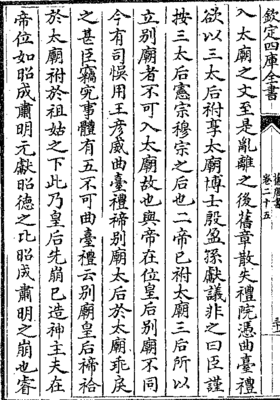 欽定四庫全書
卷二十五
入太廟之文至是亂離之後舊章散失禮院憑曲臺禮
欲以三太后祔享太廟博士殷盈孫獻議非之曰臣謹
按三太后憲宗穆宗之后也二帝已祔太廟三后所以
立別廟者不可入太廟故也與帝在位皇后別廟不同
今有司悞用王彥威曲臺禮禘別廟太后於太廟乖戾
之甚臣竊究事體有五不可曲臺禮云別廟皇后禘祫
於太廟祔於祖姑之下此乃皇后先崩已造神主夫在
帝位如昭成肅明元獻昭德之比昭成肅明之崩也睿